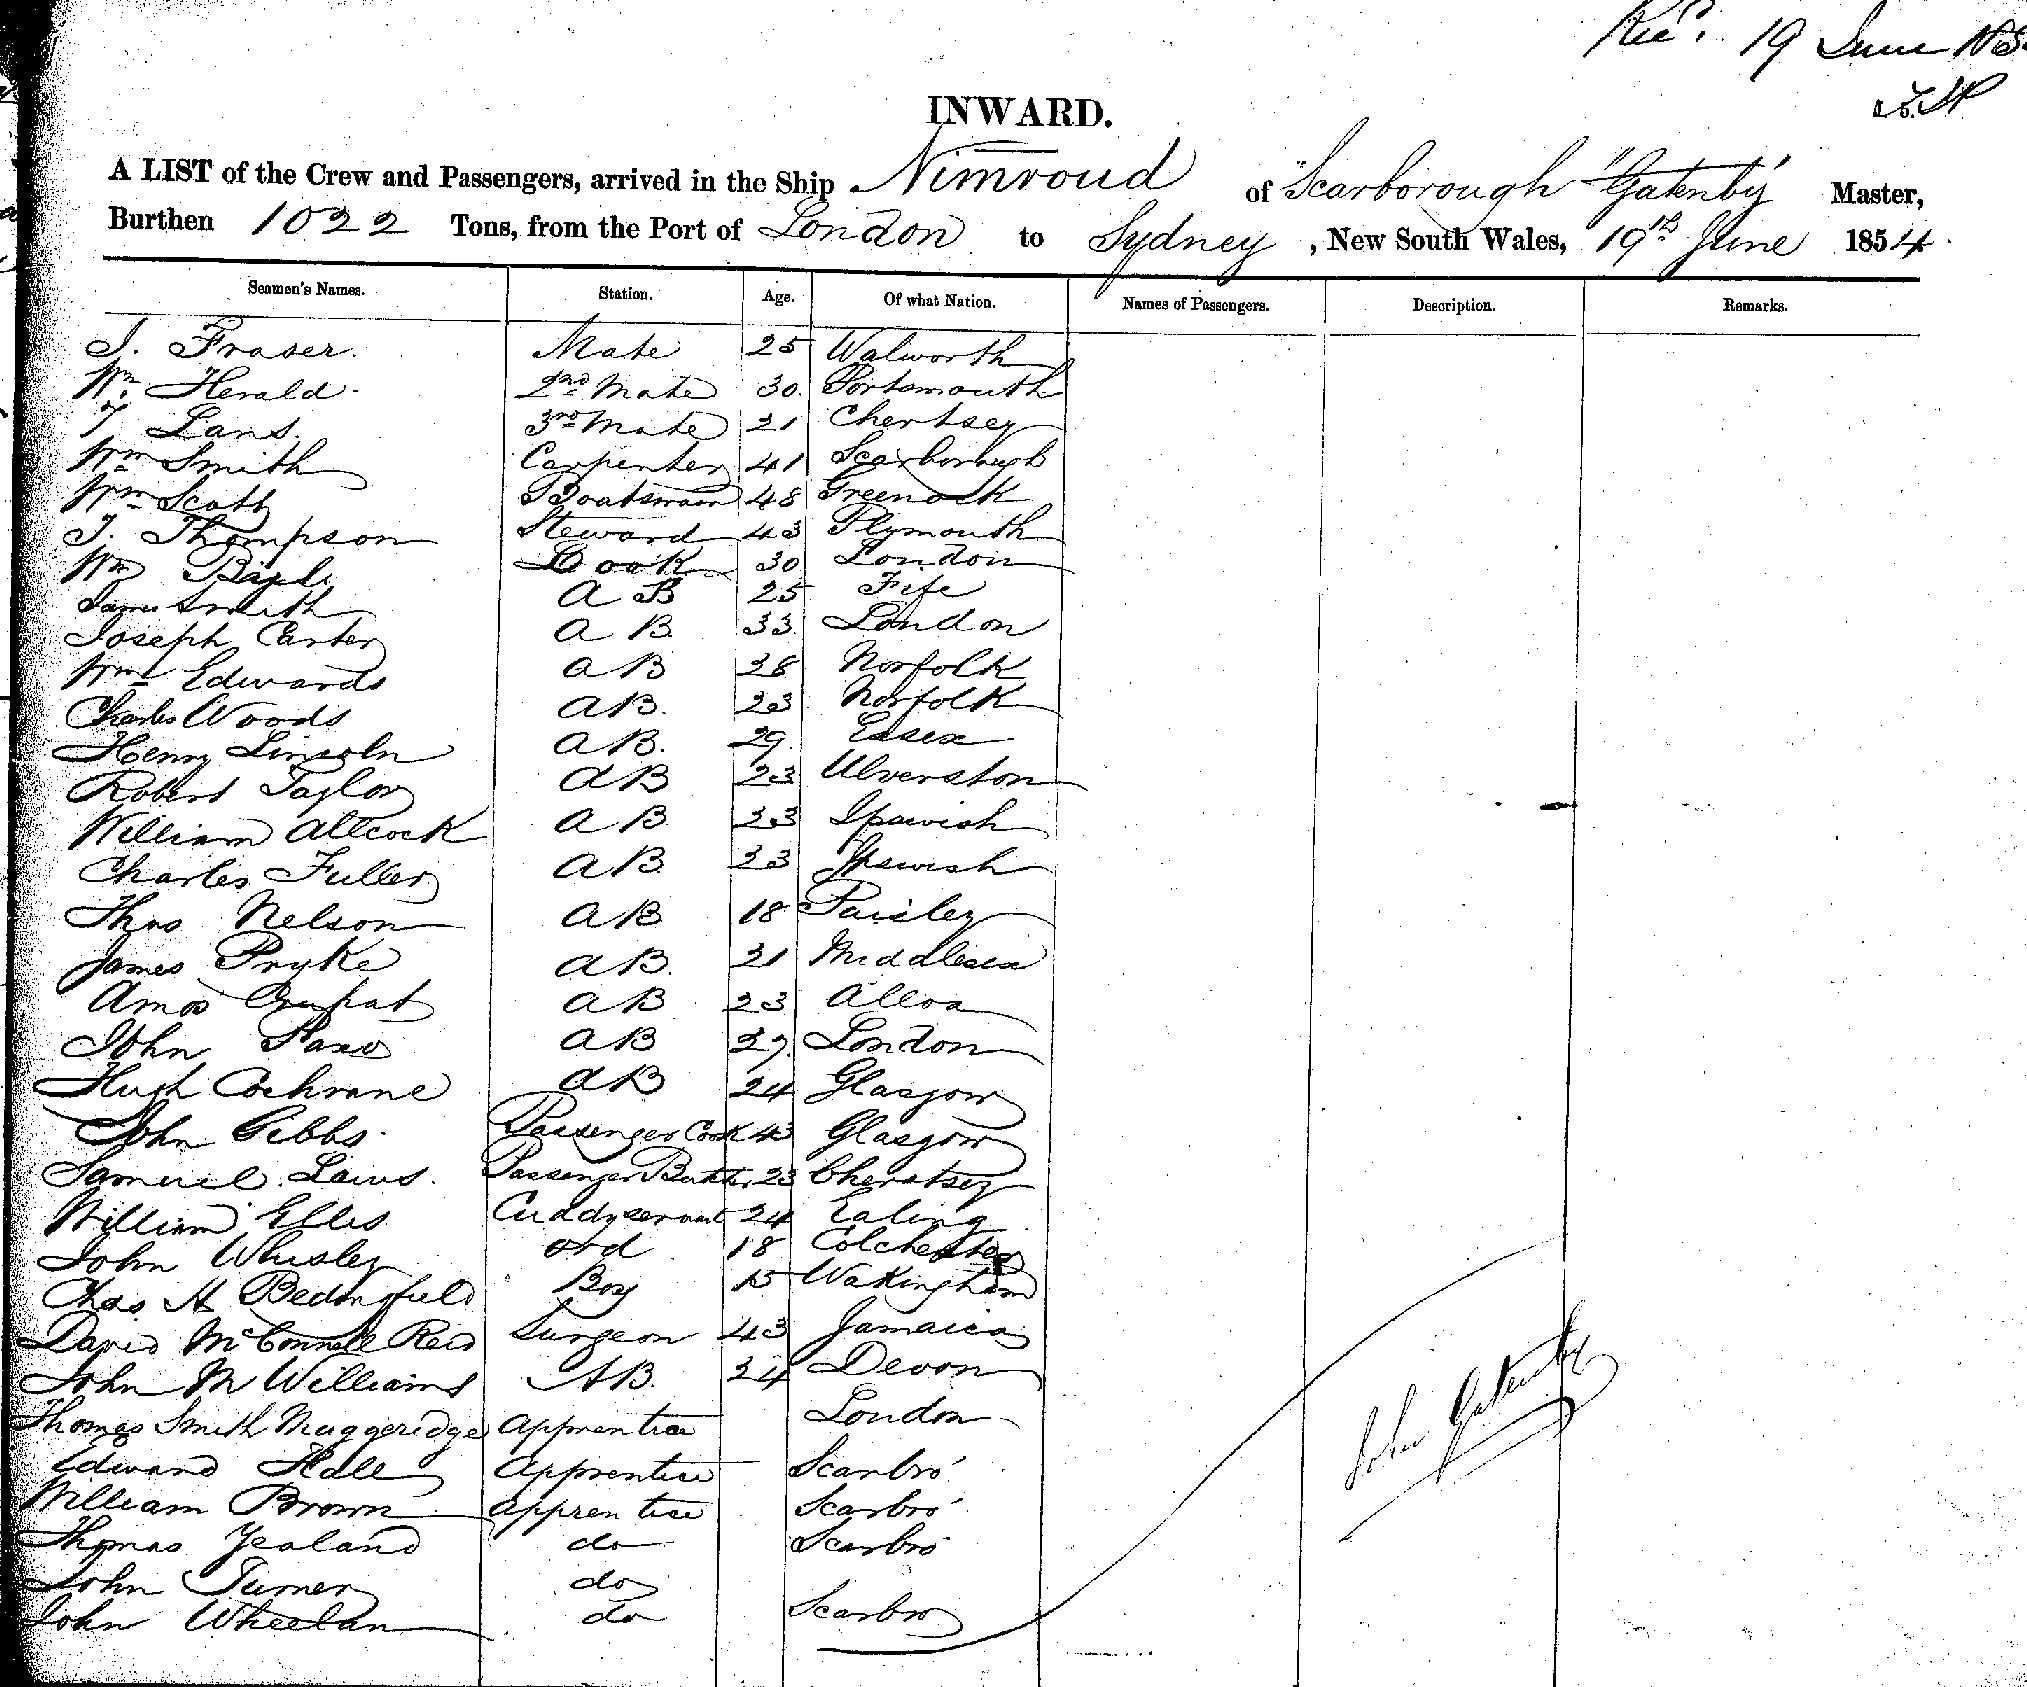 Recd. 19 June 185
INWARD.
A LIST of the Crew and Passengers, arrived in the Ship Nimroud of Scarborough "Gatenby" Master,
Burthen 1022 Tons, from the Port of London to Sydney, New South Wales, 19th June 1854.
Seamen's Names. Station. Age. Of what Nation. Names of Passengers. Description. Remarks.
J. Fraser. Mate 25 Walworth
Wm. Herald. 2nd Mate 30. Portsmouth
Laws. 3rd Mate 21 Chertsey
Wm Smith Carpenter 41 Scarborough
Wm Scott Boatswain 48 Greenock
J. Thompson Steward 43 Plymouth
Wm Cook 30 London
James Smith A B 25 Fife
Joseph Carter A B 33 London
Wm Edwards A B 28 Norfolk
Charles Woods A B. 23 Norfolk
Henry Lincoln A B. 29. Essex
Robert Taylor A B 23 Ulverston
William Allcock A B 23 Ipswich
Charles Fuller A B. 23 Ipswich
Thos Nelson A B 18 Paisley
James Pryke A B. 21 Middlesex
Amos A B 23 Alloa
John A B 27. London
Hugh Cochrane A B 24 Glasgow
John Gibbs. Passenger Cook 43 Glasgow
Samuel Laws. Passenger 23 Chertsey
William Ellis Cuddy servant 24 Ealing
John Whisley ord 18 Colchester
Chas H Bedingfield Boy 15 Wakingham
David McConnell Reid Surgeon 43 Jamaica
John M Williams AB. 24 Devon
Thomas Smith Muggeridge Apprentice London
Edward Hall Apprentice Scarbro'
William Brown Apprentice Scarbro'
Thomas Yealand do Scarbro
John Turner do
John Wheelan do Scarbro
John Gatenby